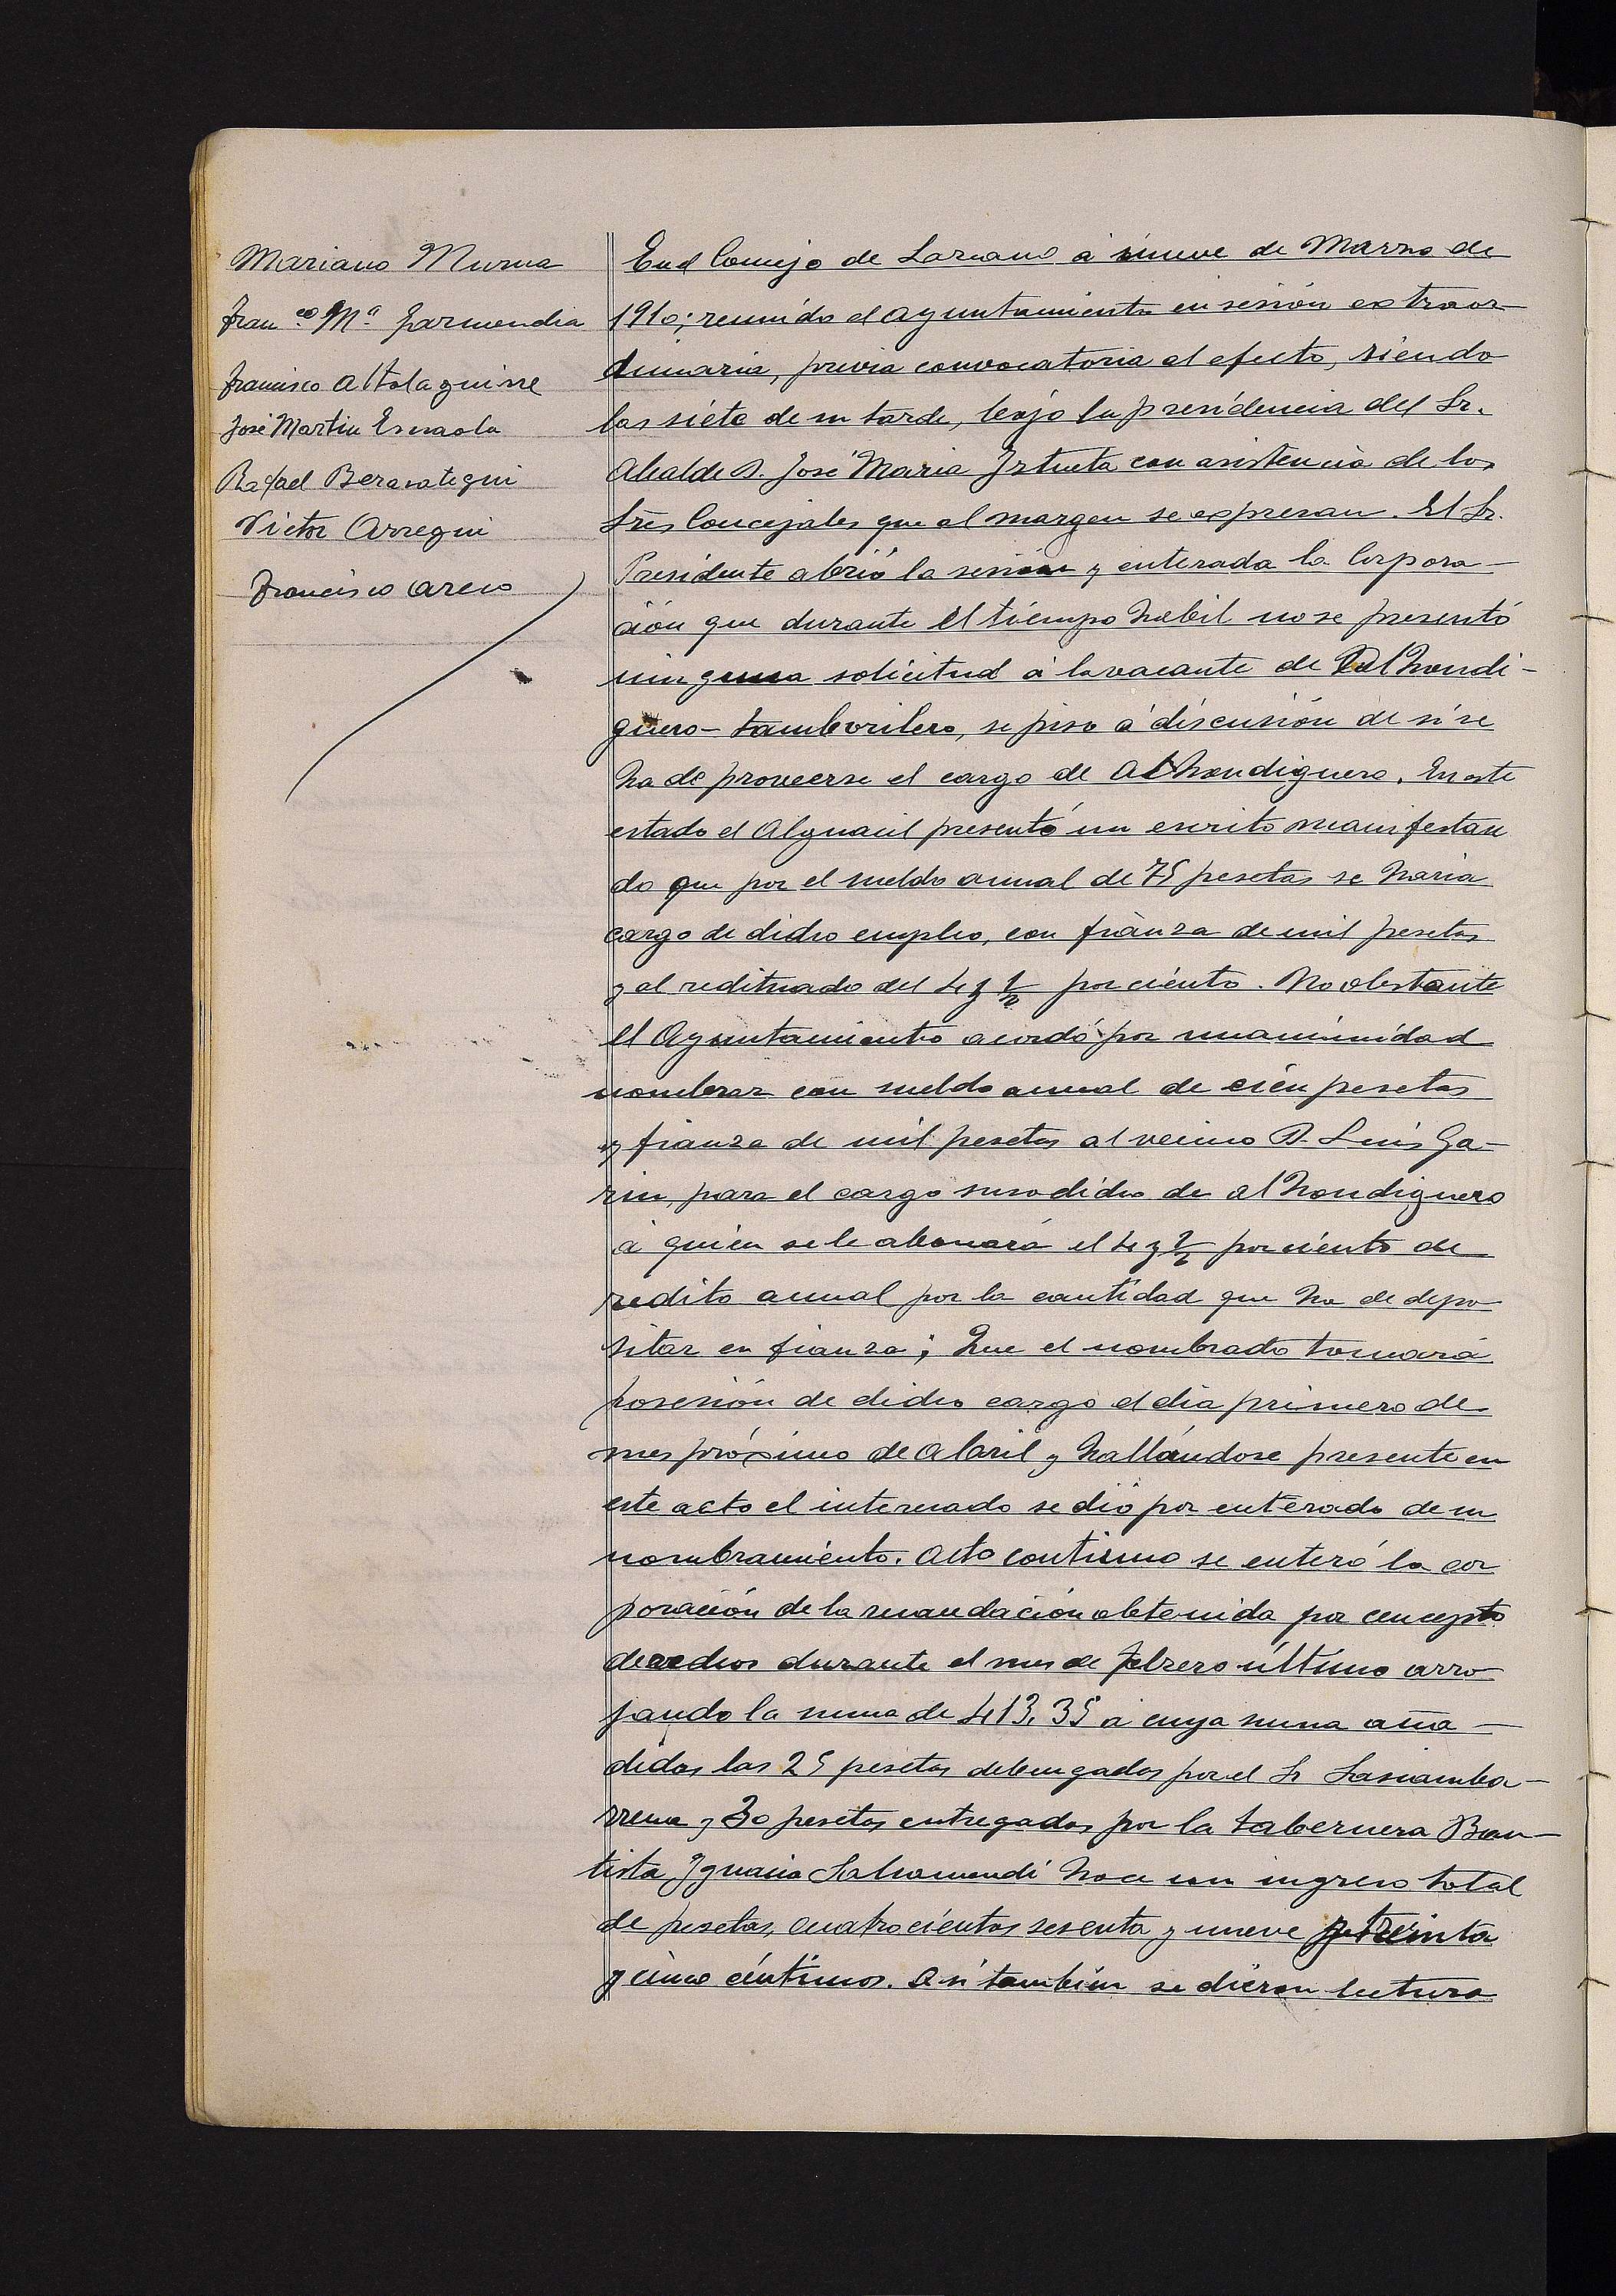 Mariano Murua
Fran.co M.a Garmendia
Francisco Altolaguirre
José Martin Esnaola
Rafael Berasategui
Victor Arregui
Francisco Areco
En el Concejo de Lazcano á nueve de Marzo de
1910; reunido el Ayuntamiento en sesión extraor-
dinaria, previa convocatoria al efecto, siendo
las siete de su tarde, bajo la presidencia del Sr.
Alcalde D. José Maria Irtueta con asistencia de los
Sres Concejales que al margen se expresan. El Sr.
Presidente abrió la sesión y enterada la Corpora-
ción que durante el tiempo habil no se presentó
ninguna solicitud á la vacante de Alhondi-
guero-tamborilero, se puso á discusión de si se
ha de proveerse el cargo de Alhondiguero. En este
estado el Alguacil presentó un escrito manifestan
do que por el sueldo anual de 75 pesetas se haria
cargo de dicho empleo, con fianza de mil pesetas
y al redituado del 4 y 1/2 por ciento. No obstante
el Ayuntamiento acordó por unanimidad
nombrar con sueldo anual de cien pesetas
y fianza de mil pesetas al vecino D. Luis Ga-
rin, para el cargo susodicho de alhondiguero
á quien se le abonará el 4 y 1/2 por ciento de
redito anual por la cantidad que ha de depo
sitar en fianza; Que el nombrado tomará
posesión de dicho cargo el dia primero de
mes próximo de Abril y hallándose presente en
este acto el interesado se dió por enterado de su
nombramiento. Acto continuo se enteró la cor
poración de la recaudación obtenida por concepto
derechos durante el mes de Febrero último arro
jando la suma de 413,35 á cuya suma aña-
didas las 25 pesetas debengadas por el Sr Lasciamba-
rrena y 30 pesetas entregadas por la tabernera Bau-
tista Ignacia Salsamendi hace un ingreso total
de pesetas, cuatrocientas sesenta y nueve treinta
y cinco céntimos. Asi tambien se dieron lectura